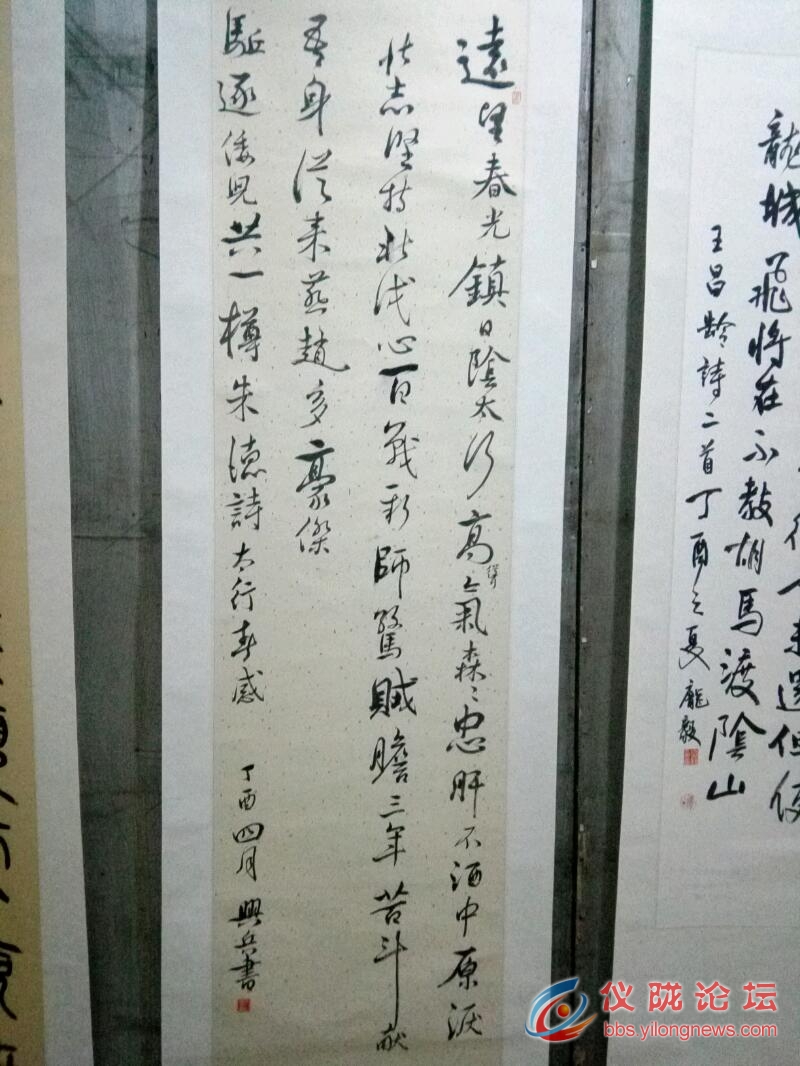 未還但使
龍城飛将在不教胡馬渡陰山
王昌齡詩二首丁酉之夏龐毅
遠望春光鎮日陰太行高聳氣森〻忠肝不洒中原淚
壯志堅持北伐心百戰新師驚贼膽三年苦斗献
吾身從来燕趙多豪傑
駈逐倭児共一樽朱德詩太行春感 丁酉四月興兵書
仪陇论坛
bbs.yilongnews.com